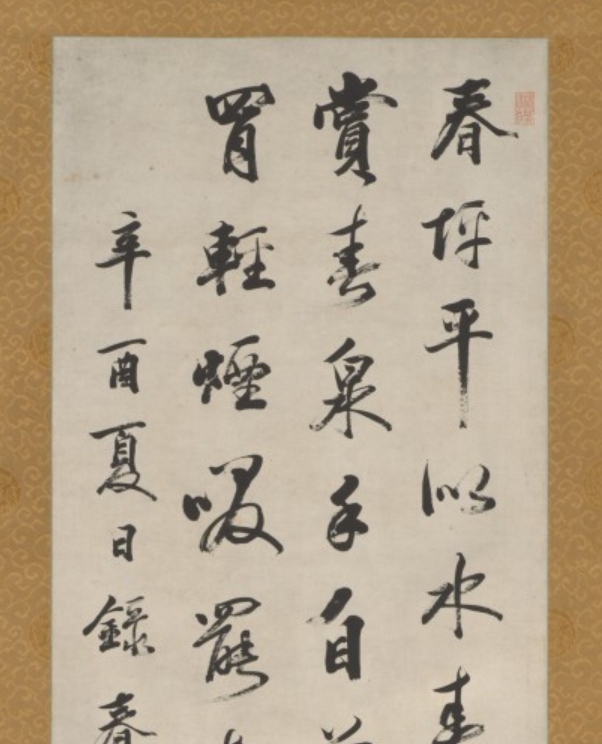 春坪平似水
賞春泉手自
罥輕煙啜罷
辛酉夏日錄春